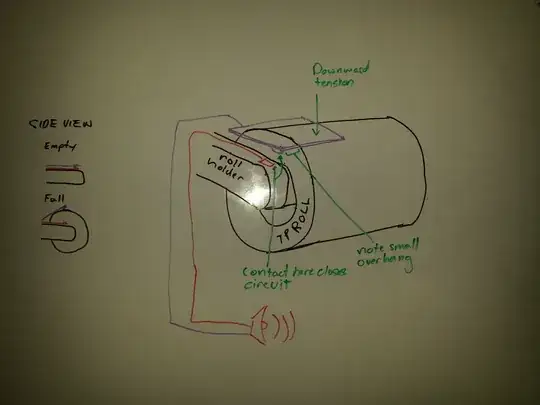 Downward
tension
SIDE VIEW
Empty
Full
roll
holder
TP ROLL
Contact here closes
circuit
note small
overhang